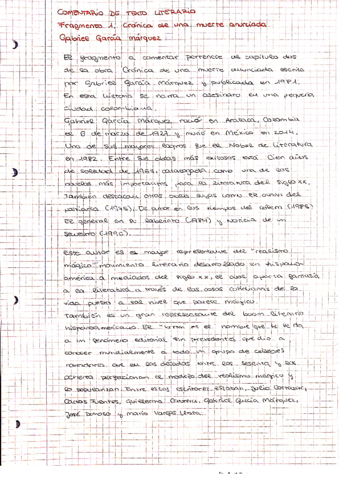 COMENTARIO DE TEXTO LITERARIO
Fragmento 1, Crónica de una muerte anunciada
Gabriel García Márquez
El fragmento a comentar pertenece al capítulo dos
de la obra, Crónica de una muerte anunciada escrita
por Gabriel García Márquez y publicada en 1981.
En esta historia se narra un asesinato en una pequeña
ciudad colombiana.
Gabriel García Márquez nació en Aracata, Colombia
el 6 de marzo de 1927 y murió en México en 2014.
Uno de sus mayores logros fue el Nobel de Literatura
en 1982. Entre sus obras más exitosas está Cien años
de soledad de 1967, catalogada como una de las
novelas más importantes para la literatura del siglo XX.
También destacan otras obras suyas como El otoño del
patriarca (1975), El amor en los tiempos del cólera (1985)
El general en su laberinto (1989) y Noticia de un
secuestro (1996).
Este autor es el mayor representante del "realismo
mágico" movimiento literario desarrollado en Hispano
américa a mediados del siglo XX, el cual aporta fantasía
a la literatura a través de las cosas cotidianas de la
vida puestas a tal nivel que parece mágico.
También es un gran representante del boom literario
hispanoamericano. El "boom" es el nombre que le se da
a un fenómeno editorial sin precedentes que dio a
conocer mundialmente a todo un grupo de
narradores que en las décadas entre los sesenta y los
ochenta perfeccionan el modelo del realismo mágico y
lo popularizan. Entre estos escritores estaban, Julio Cortázar,
Carlos Fuentes, Guillermo Cabrera, Gabriel García Márquez,
José Donoso y Mario Vargas Llosa.